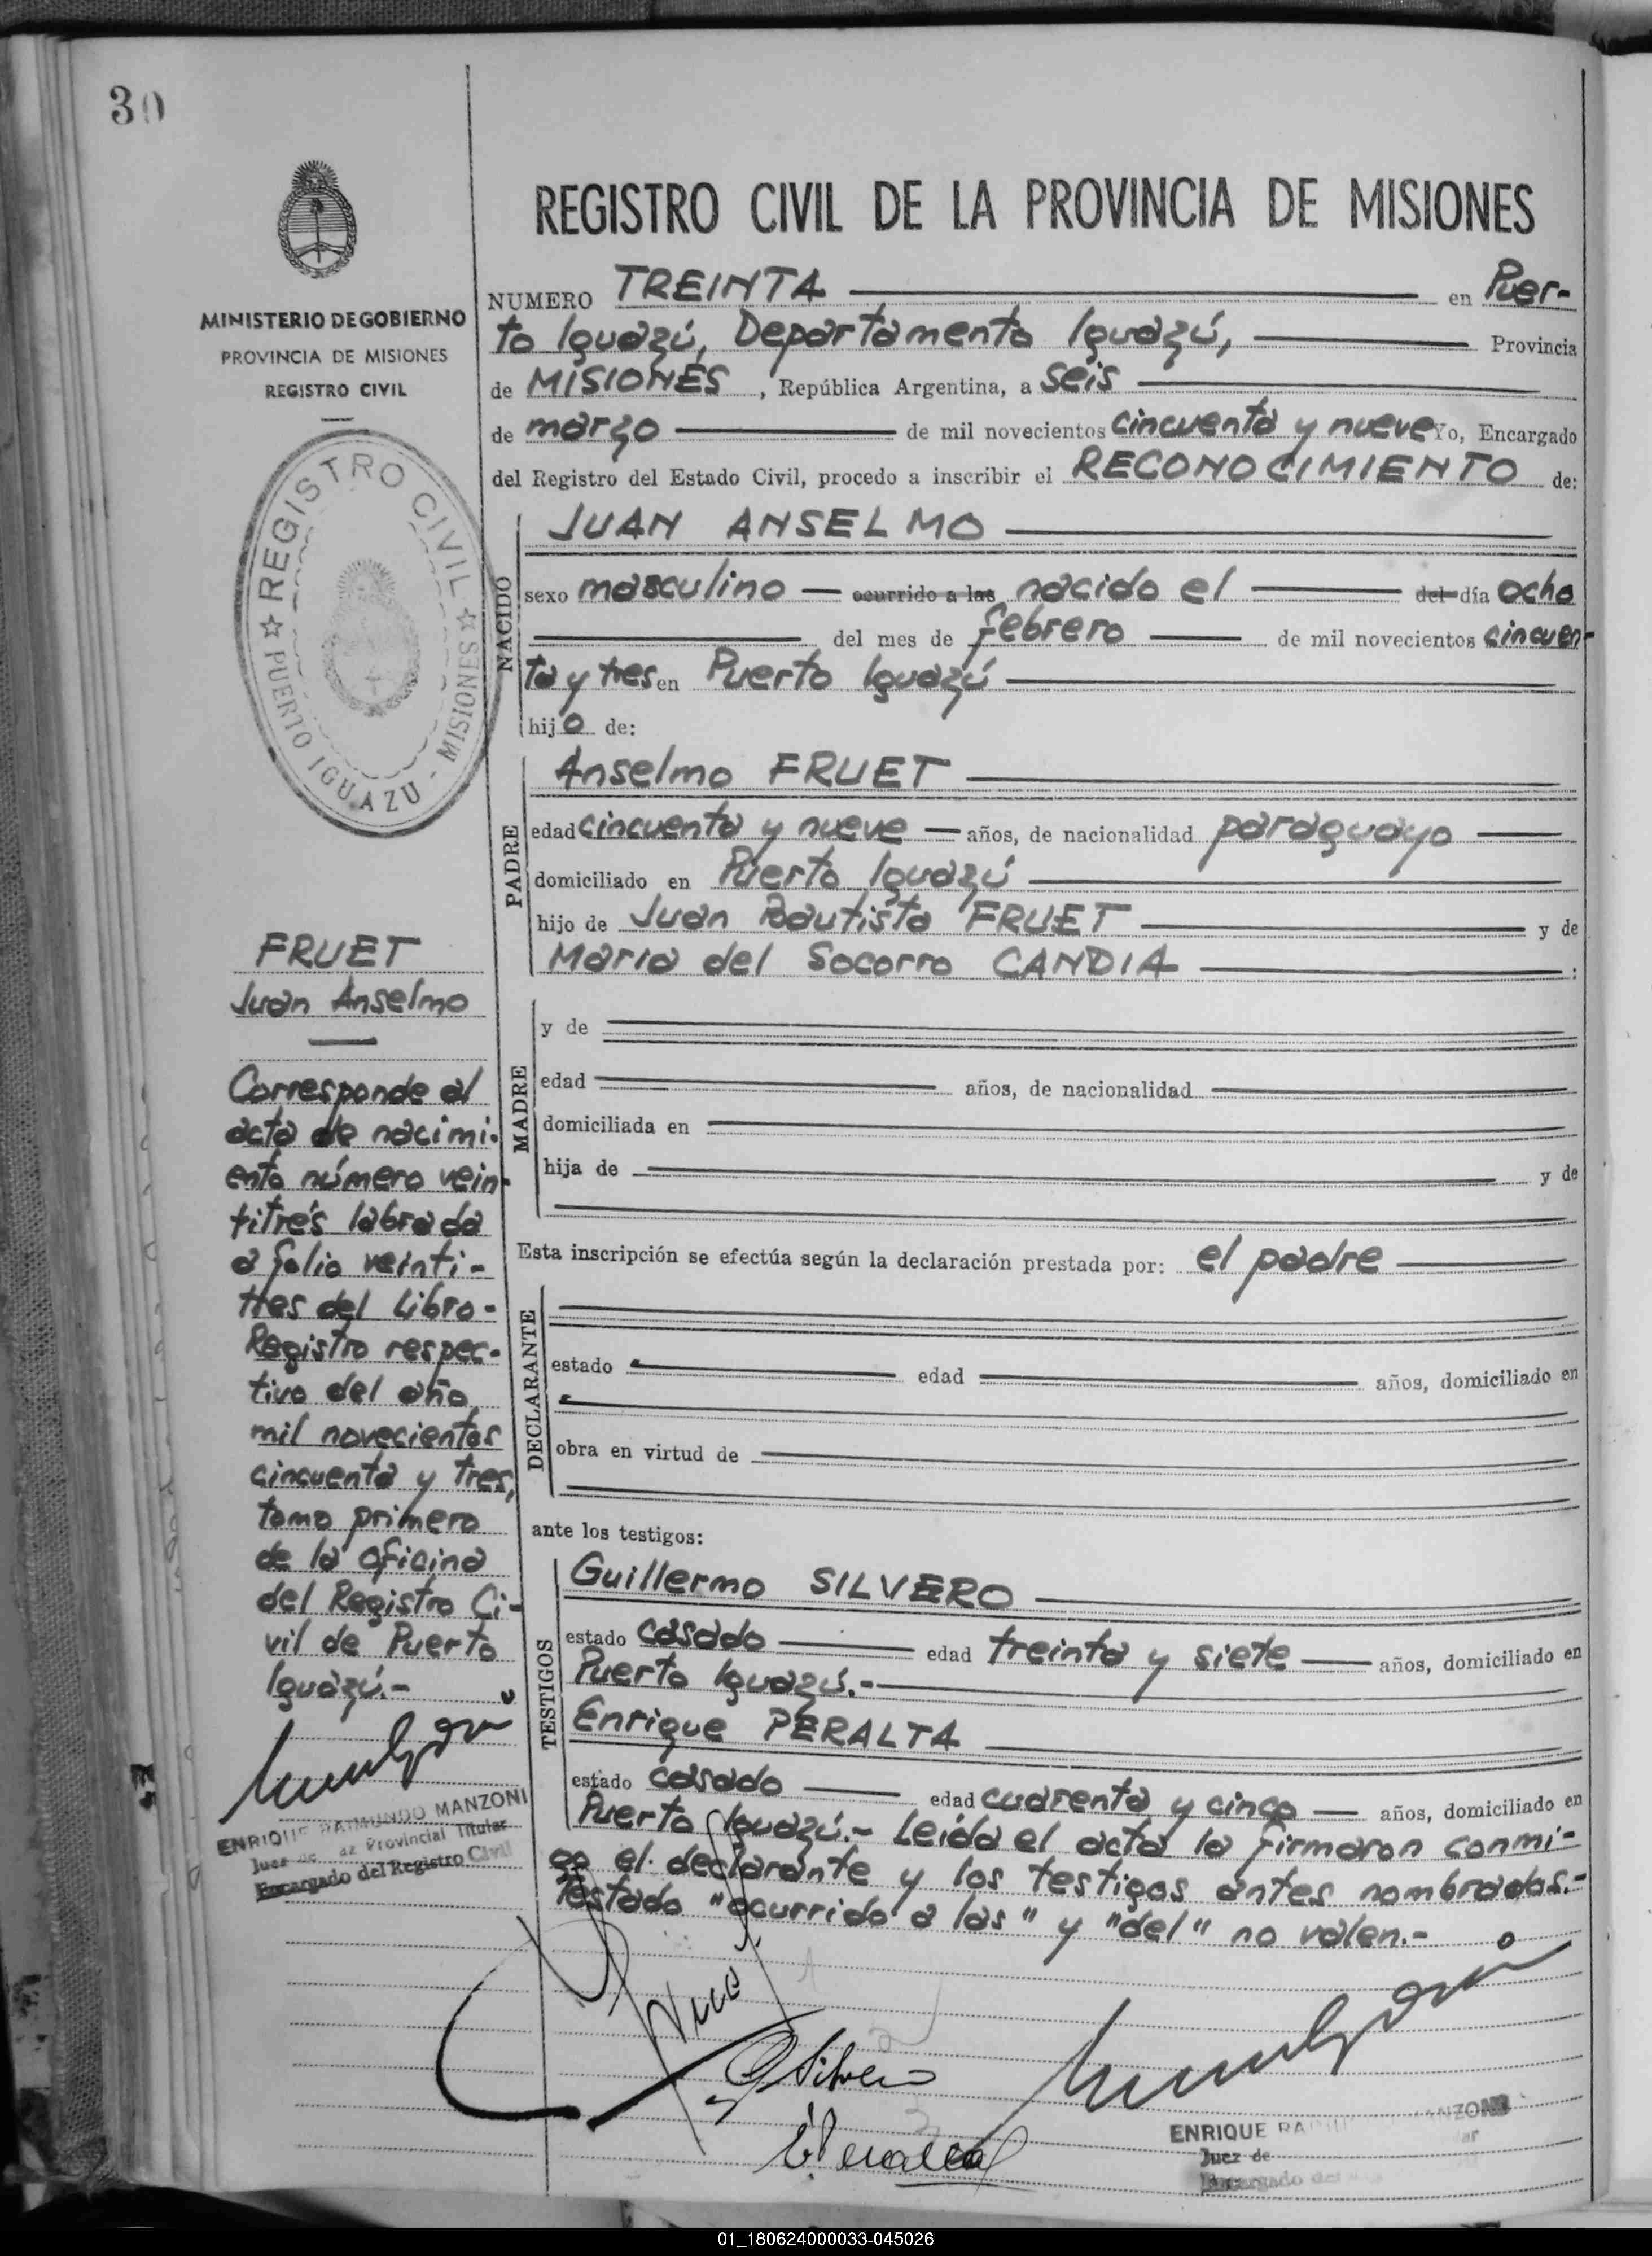 30
MINISTERIO DE GOBIERNO
PROVINCIA DE MISIONES
REGISTRO CIVIL
REGISTRO CIVIL
PUERTO IGUAZU - MISIONES
FRUET
Juan Anselmo
Corresponde al
acta de nacimi-
ento número vein-
titrés labrada
a folio veinti-
tres del Libro-
Registro respec-
tivo del año
mil novecientos
cincuenta y tres,
tomo primero
de la oficina
del Registro Ci-
vil de Puerto
Iguazú.-
ENRIQUE RAIMUNDO MANZONI
Juez de Paz Provincial Titular
Encargado del Registro Civil
REGISTRO CIVIL DE LA PROVINCIA DE MISIONES
NUMERO TREINTA en Puer-
to Iguazú, Departamento Iguazú, Provincia
de MISIONES, República Argentina, a seis
de marzo de mil novecientos cincuenta y nueve Yo, Encargado
del Registro del Estado Civil, procedo a inscribir el RECONOCIMIENTO de:
NACIDO
JUAN ANSELMO
sexo masculino ocurrido a las nacido el del día ocho
del mes de febrero de mil novecientos cincuen-
ta y tres en Puerto Iguazú
hijo de:
PADRE
Anselmo FRUET
edad cincuenta y nueve años, de nacionalidad paraguayo
domiciliado en Puerto Iguazú
hijo de Juan Bautista FRUET y de
Maria del Socorro CANDIA :
MADRE
y de
edad años, de nacionalidad
domiciliada en
hija de y de
Esta inscripción se efectúa según la declaración prestada por: el padre
DECLARANTE
estado edad años, domiciliado en
obra en virtud de
ante los testigos:
TESTIGOS
Guillermo SILVERO
estado casado edad treinta y siete años, domiciliado en
Puerto Iguazú.-
Enrique PERALTA
estado casado edad cuarenta y cinco años, domiciliado en
Puerto Iguazú.- Leída el acta la firmaron conmi-
go el declarante y los testigos antes nombrados.-
Testado "ocurrido a las" y "del" no valen.-
GSilvero
EPeralta
ENRIQUE RAIMUNDO MANZONI
Juez de
Encargado del
01_180624000033-045026